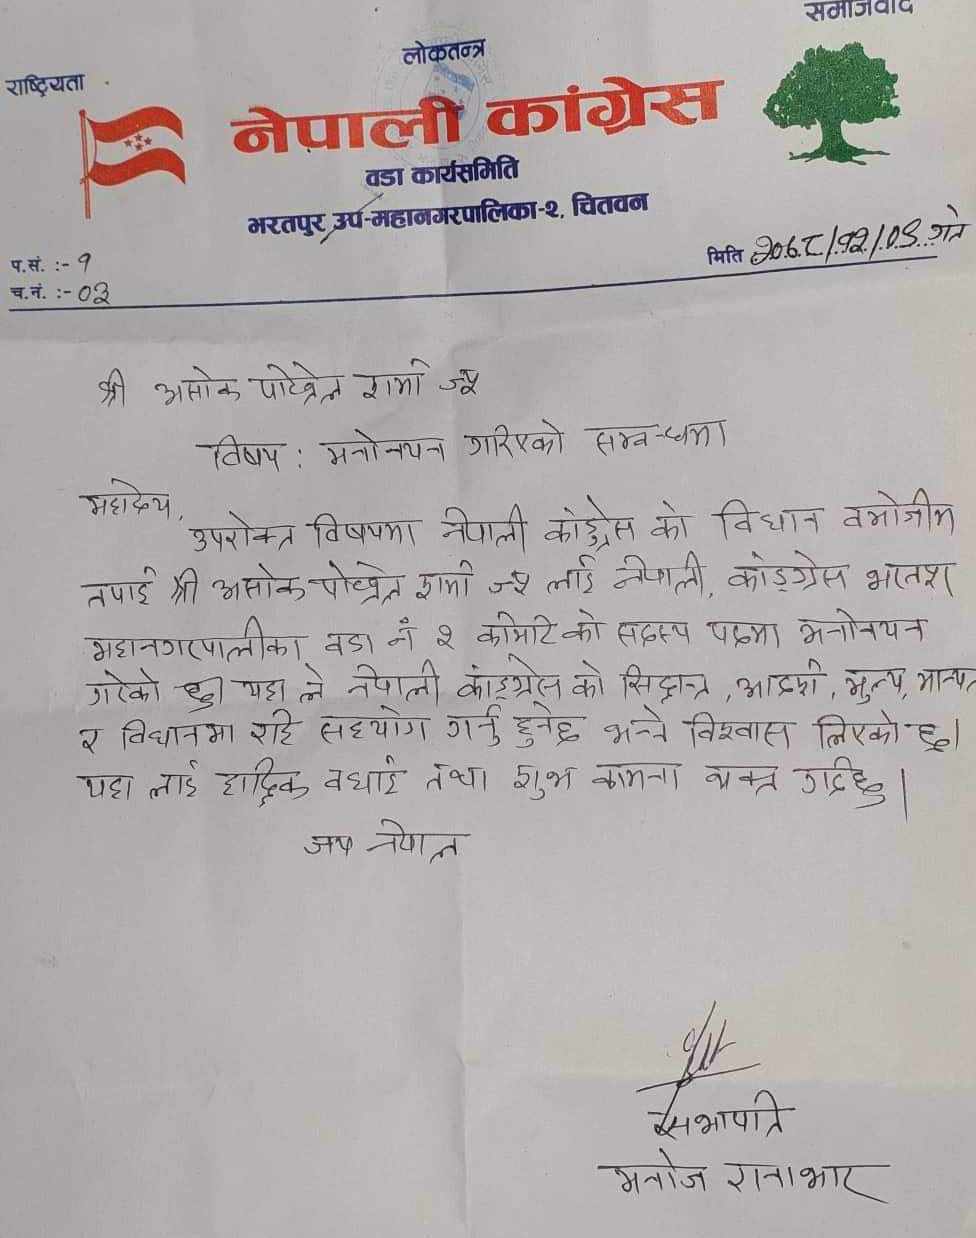 समाजवाद
लोकतन्त्र
राष्ट्रियता
नेपाली कांग्रेस
वडा कार्यसमिति
भरतपुर उप-महानगरपालिका-२, चितवन
प.सं. :- १
मिति २०६८/१२/०९ गते
च.नं. :- ०३
श्री असोक पोख्रेल शर्मा ज्यू
विषय : मनोनयन गरिएको सम्बन्धमा
महोदय,
उपरोक्त विषयमा नेपाली काँङ्ग्रेस को विधान बमोजीम
तपाई श्री असोक पोख्रेल शर्मा ज्यू लाई नेपाली, काङ्ग्रेस भरतपुर
महानगरपालीका वडा नं २ कमिटि को सदस्य पदमा मनोनयन
गरेको छु यहा ले नेपाली काङ्ग्रेस को सिद्धान्त, आदर्श, मुल्य, मान्यता
र विधानमा रहि सहयोग गर्नु हुनेछ भन्ने विश्वास लिएको छु।
यहा लाई हार्दिक बधाई तथा शुभ कामना व्यक्त गर्दछु।
जय नेपाल
सभापति
मनोज रानाभार